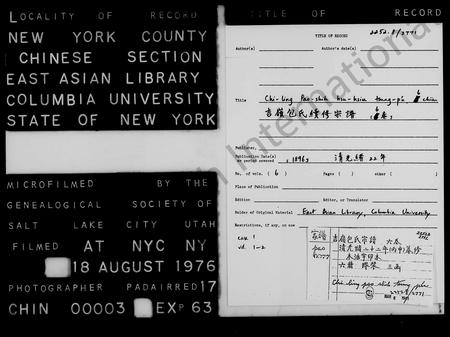 LOCALITY OF RECORD
NEW YORK COUNTY
CHINESE SECTION
EAST ASIAN LIBRARY
COLUMBIA UNIVERSITY
STATE OF NEW YORK
MICROFILMED BY THE
GENEALOGICAL SOCIETY OF
SALT LAKE CITY UTAH
FILMED AT NYC NY
18 AUGUST 1976
PHOTOGRAPHER PADAIRRED 17
CHIN 00003 EXP 63
TITLE OF RECORD
TITLE OF RECORD
2252.8/2771
Author(s)
Author's date(s)
Title Chi-ling Pao-shih hsu-hsiu tsung-p'u 6 chüan
吉嶺包氏續修宗譜 6卷
Publisher,
Publication Date(s) or period covered , 1896, 清光緒22年
No. of vols. ( 6 ) Pages ( ) other ( )
Place of Publication
Edition Editor, or Translator
Holder of Original Material East Asian Library, Columbia University
Restrictions, if any, on use
vol. 1-2
家譜
吉嶺包氏宗譜 六卷
清光緒二十二年(丙申)葺修
木活字印本
六冊
Chi ling pao shih tsung p'u
2252.8/2771
International